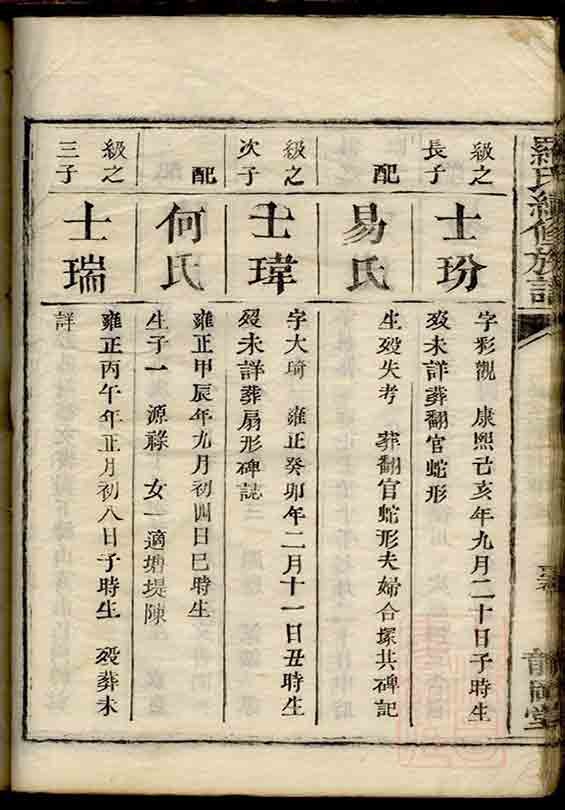 羅氏續修族譜
級之
長子
士玢
字彩觀 康熙己亥年九月二十日子時生
歿未詳葬翻官蛇形
配
易氏
生歿失考 葬翻官蛇形夫婦合塚共碑記
級之
次子
士瑋
字大琦 雍正癸卯年二月十一日丑時生
歿未詳葬扇形碑誌
配
何氏
雍正甲辰年九月初四日巳時生
生子一 源祿 女一適塘堤陳
級之
三子
士瑞
雍正丙午年正月初八日子時生 歿葬未
詳